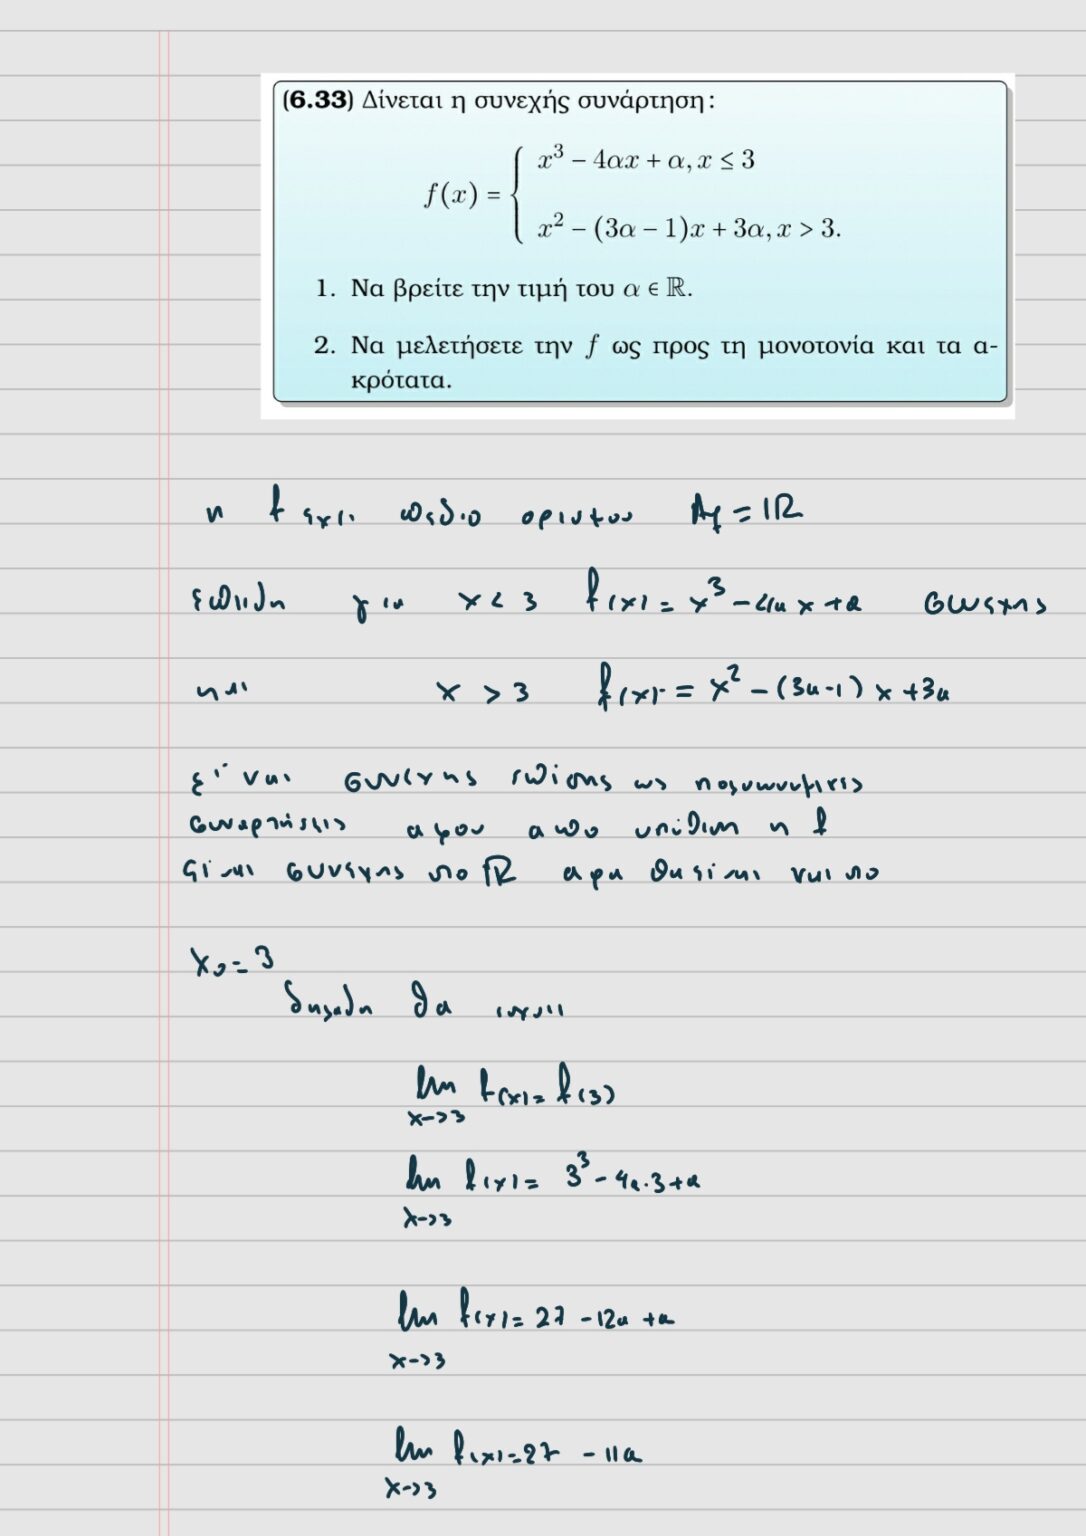 (6.33) Δίνεται η συνεχής συνάρτηση:
f(x) = { x³ − 4αx + α, x ≤ 3
x² − (3α − 1)x + 3α, x > 3.
1. Να βρείτε την τιμή του α ∈ ℝ.
2. Να μελετήσετε την f ως προς τη μονοτονία και τα α-
κρότατα.
η f έχει πεδιο ορισμου A_f = ℝ
επειδη για x < 3 f(x) = x³ − 4αx + α συνεχης
και x > 3 f(x) = x² − (3α−1)x + 3α
είναι συνεχης επίσης ως πολυωνυμικες
συναρτήσεις αφου απο υπόθεση η f
είναι συνεχης στο ℝ αρα θα είναι και στο
x₀ = 3
δηλαδη θα ισχυει
lim f(x) = f(3)
x->3
lim f(x) = 3³ − 4α·3 + α
x->3
lim f(x) = 27 − 12α + α
x->3
lim f(x) = 27 − 11α
x->3